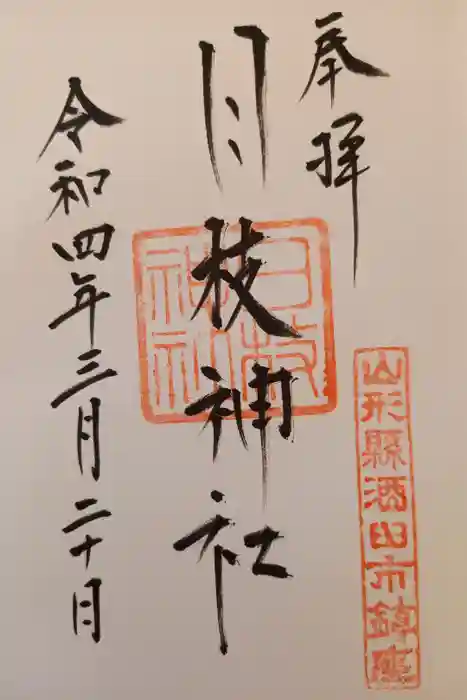 奉拝
日枝神社
令和四年三月二十日
日枝神社
山形縣酒田市鎮座